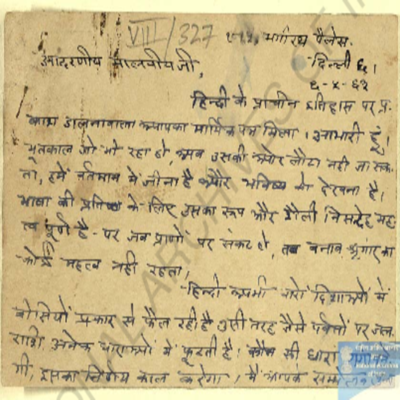 VIII/327
भगीरथ पैलेस.
आदरणीय मालवीय जी,
दिल्ली ६।
६-५-६१
हिन्दी के प्राचीन इतिहास पर प्र-
काश डालनेवाला आपका मार्मिक पत्र मिला। आभारी हूँ।
भूतकाल जो भी रहा हो, अब उसकी ओर लौटा नहीं जा सक-
ता, हमें वर्तमान में जीना है और भविष्य को देखना है।
भाषा की प्रतिष्ठा के लिए उसका रूप और शैली निसंदेह मह-
त्व पूर्ण है - पर जब प्राणों पर संकट हो, तब बनाव श्रृंगार का
कोई महत्व नहीं रहता।
हिन्दी अभी चारों दिशाओं में
बीसियों प्रकार से फैल रही है उसी तरह जैसे पर्वतों पर जल
राशि अनेक धाराओं में फूटती है। कौन सी धारा गंगा बने
गी, इसका निर्णय काल करेगा। मैं आपके